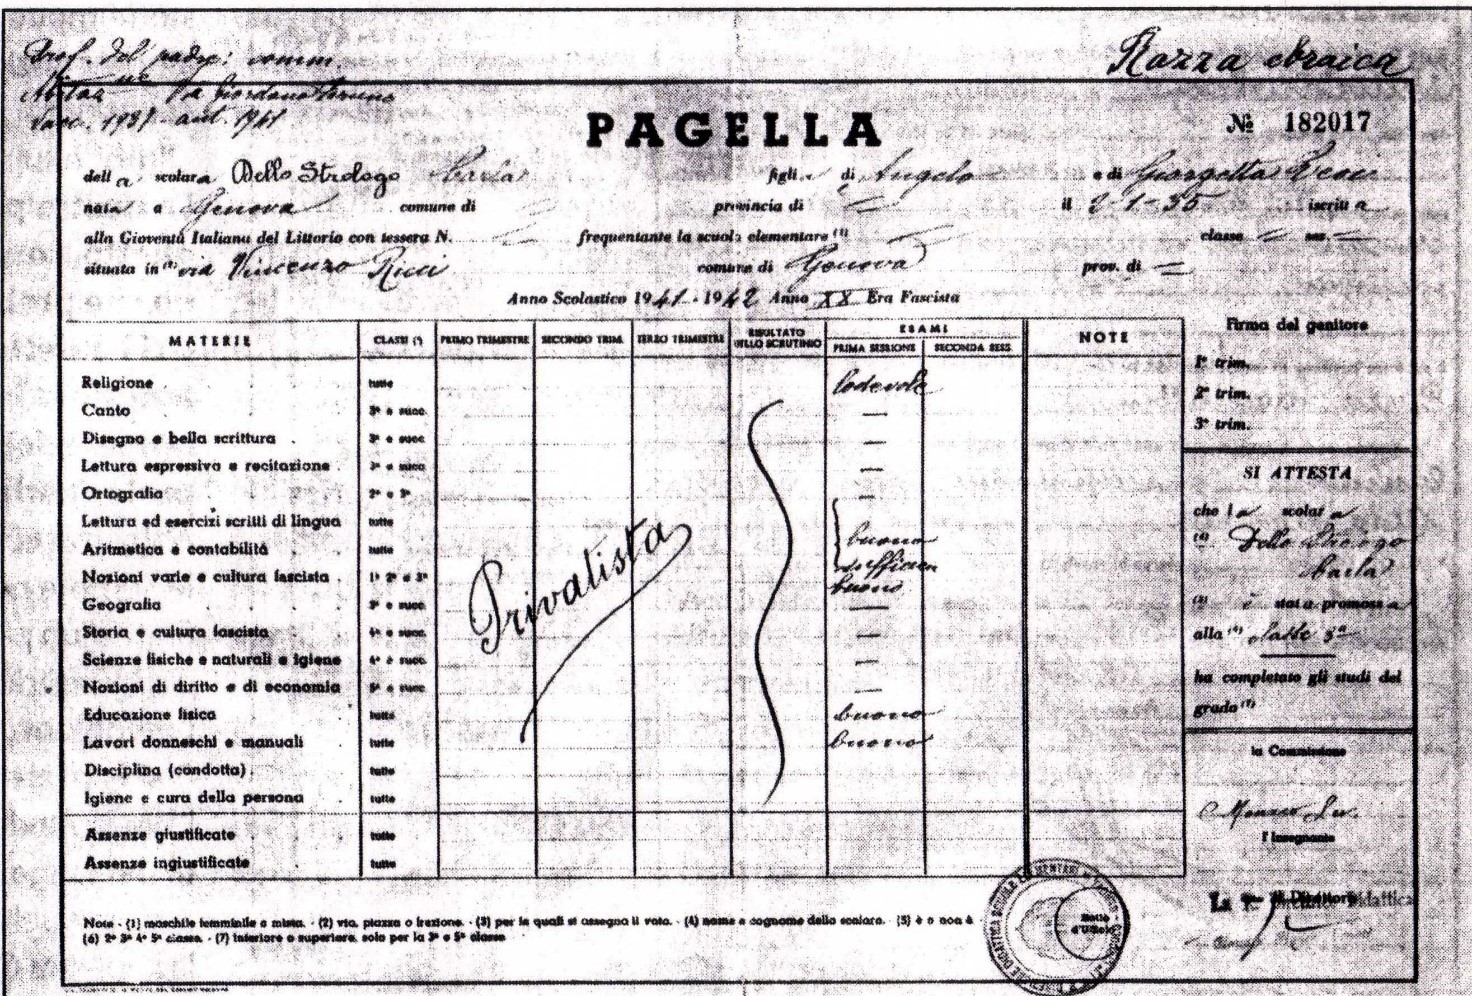 Prof. del padre: comm.
Abitaz.ne Via Giordano Bruno
Vacc. 1937 - ant. 1941
Razza ebraica
PAGELLA
№ 182017
della scolara Dello Strologo Carla figli a di Angelo e di Giorgetta
nata a Genova comune di = provincia di = il 2-1-35 iscritta
alla Gioventù Italiana del Littorio con tessera N. = frequentante la scuola elementare (1) = classe = sez. =
situata in (2) via Vincenzo Ricci comune di Genova prov. di =
Anno Scolastico 1941 - 1942 Anno XX Era Fascista
MATERIE CLASSI (3) PRIMO TRIMESTRE SECONDO TRIM. TERZO TRIMESTRE RISULTATO DELLO SCRUTINIO ESAMI PRIMA SESSIONE SECONDA SESS. NOTE
Religione tutte lodevole
Canto 3ª e succ. —
Disegno e bella scrittura 3ª e succ. —
Lettura espressiva e recitazione 3ª e succ. —
Ortografia 2ª e 3ª —
Lettura ed esercizi scritti di lingua tutte
Aritmetica e contabilità tutte buono
sufficien
Nozioni varie e cultura fascista 1ª 2ª e 3ª buono
Geografia 3ª e succ. —
Storia e cultura fascista 4ª e succ. —
Scienze fisiche e naturali e igiene 4ª e succ. —
Nozioni di diritto e di economia 5ª e succ. —
Educazione fisica tutte buono
Lavori donneschi e manuali tutte buono
Disciplina (condotta) tutte
Igiene e cura della persona tutte
Assenze giustificate tutte
Assenze ingiustificate tutte
Privatista
Firma del genitore
1° trim.
2° trim.
3° trim.
SI ATTESTA
che la scolara
(4) Dello Strologo
Carla
(5) è stata promossa
alla (6) classe 3ª
ha completato gli studi del
grado (7)
la Commissione
l'Insegnante
Note - (1) maschile femminile o mista. - (2) via, piazza o frazione. - (3) per le quali si assegna il voto. - (4) nome e cognome dello scolaro. - (5) è o non è
(6) 2ª 3ª 4ª 5ª classe. - (7) inferiore o superiore, solo per la 3ª e 5ª classe
Bollo
d'Ufficio